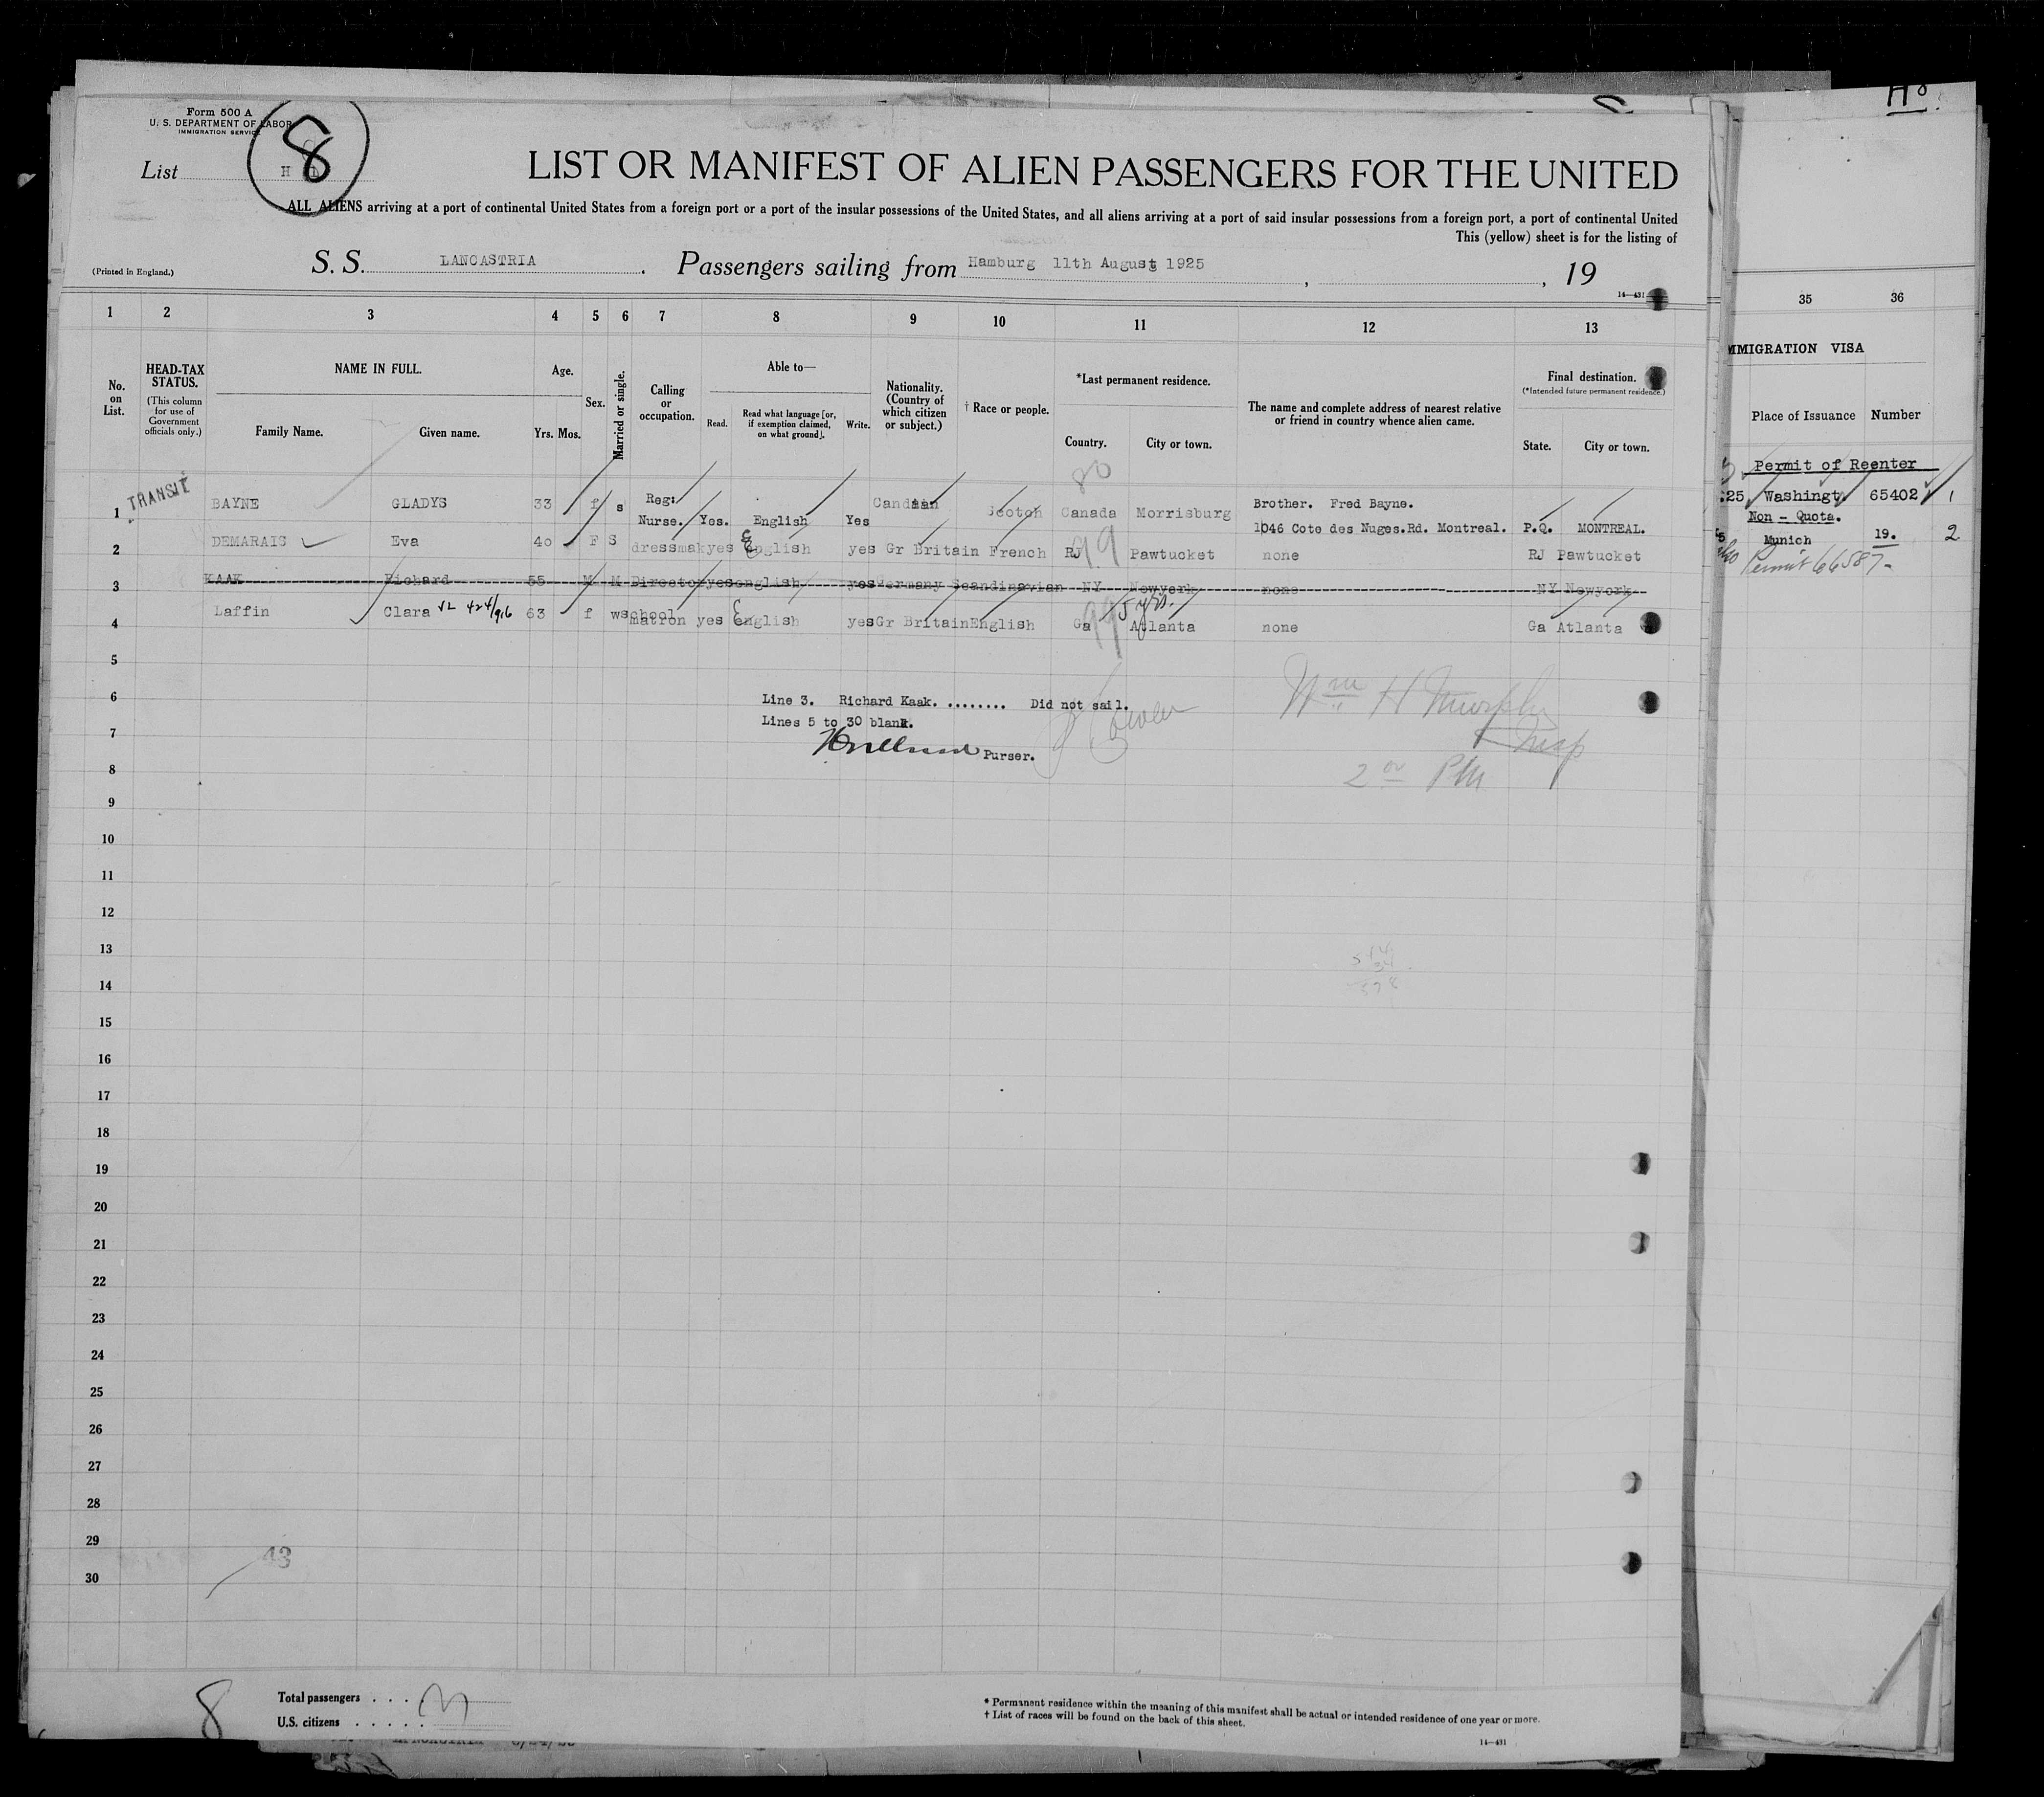 Form 500 A
U. S. DEPARTMENT OF LABOR
IMMIGRATION SERVICE
List H 1
8
LIST OR MANIFEST OF ALIEN PASSENGERS FOR THE UNITED
ALL ALIENS arriving at a port of continental United States from a foreign port or a port of the insular possessions of the United States, and all aliens arriving at a port of said insular possessions from a foreign port, a port of continental United
This (yellow) sheet is for the listing of
(Printed in England.)
S. S. LANCASTRIA . Passengers sailing from Hamburg 11th August 1925 , , 19
14—431
1 2 3 4 5 6 7 8 9 10 11 12 13 35 36
No. on List.
HEAD-TAX STATUS.
(This column for use of Government officials only.)
NAME IN FULL.
Family Name. Given name.
Age.
Yrs. Mos.
Sex.
Married or single.
Calling or occupation.
Able to—
Read.
Read what language [or, if exemption claimed, on what ground].
Write.
Nationality. (Country of which citizen or subject.)
† Race or people.
*Last permanent residence.
Country. City or town.
The name and complete address of nearest relative or friend in country whence alien came.
Final destination.
(*Intended future permanent residence.)
State. City or town.
MMIGRATION VISA
Place of Issuance Number
Permit of Reenter
80
1 TRANSIT BAYNE GLADYS 33 f s Reg: Nurse. Yes. English Yes Candian Scotch Canada Morrisburg Brother. Fred Bayne. 1046 Cote des Nuges.Rd. Montreal. P.Q. MONTREAL. 25 Washingt. 65402 1
Non - Quota.
2 DEMARAIS Eva 40 F S dressmak yes English yes Gr Britain French RJ 99 Pawtucket none RJ Pawtucket 5 Munich 19. 2
Permit 66587-
3 KAAK Richard 55 M M Director yes english yes Germany Scandinavian NY Newyork none NY Newyork
4 Laffin Clara VL 424/916 63 f w school matron yes English yes Gr Britain English Ga 99 5 yrs. Atlanta none Ga Atlanta
5
6 Line 3. Richard Kaak. ........ Did not sail.
Lines 5 to 30 blank.
7 Purser.
Wm H Murphy
Insp
2 00 PM
8
9
10
11
12
13
514
34
14
15
16
17
18
19
20
21
22
23
24
25
26
27
28
29
43
30
8
Total passengers . . . . 3
U.S. citizens . . . . .
* Permanent residence within the meaning of this manifest shall be actual or intended residence of one year or more.
† List of races will be found on the back of this sheet.
14—431